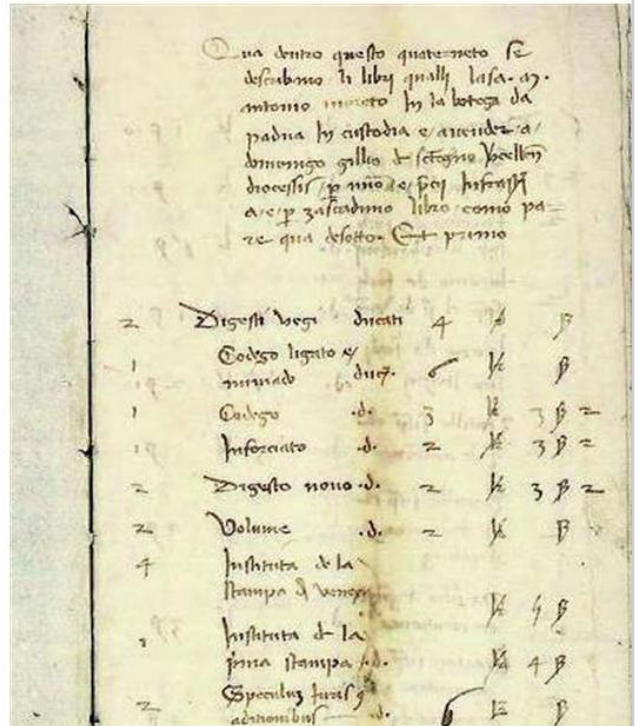 Qua dentro questo quaterneto se
describano li libri qualli lassa. m.
antonio moreto In la botega da
padua In custodia e/ a uender a/
domenigo gillio
diocessis p
a/e/ p zaschaduno libro como pa=
re qua desotto. Et primo
2 Digesti vegi ducati 4 ß
1 Codego ligato e/
miniado duc. 6 ß
1 Codego .d. 3 3 ß 2
1 Inforciato .d. 2 3 ß 2
2 Digesto nouo .d. 2 3 ß 2
2 Volume .d. 2 ß
4 Instituta de la
stampa d venexia ß
1 Instituta d la
pma stampa .d. 4 ß
2 Speculuz iuris
aditionibus .d. 6 ß